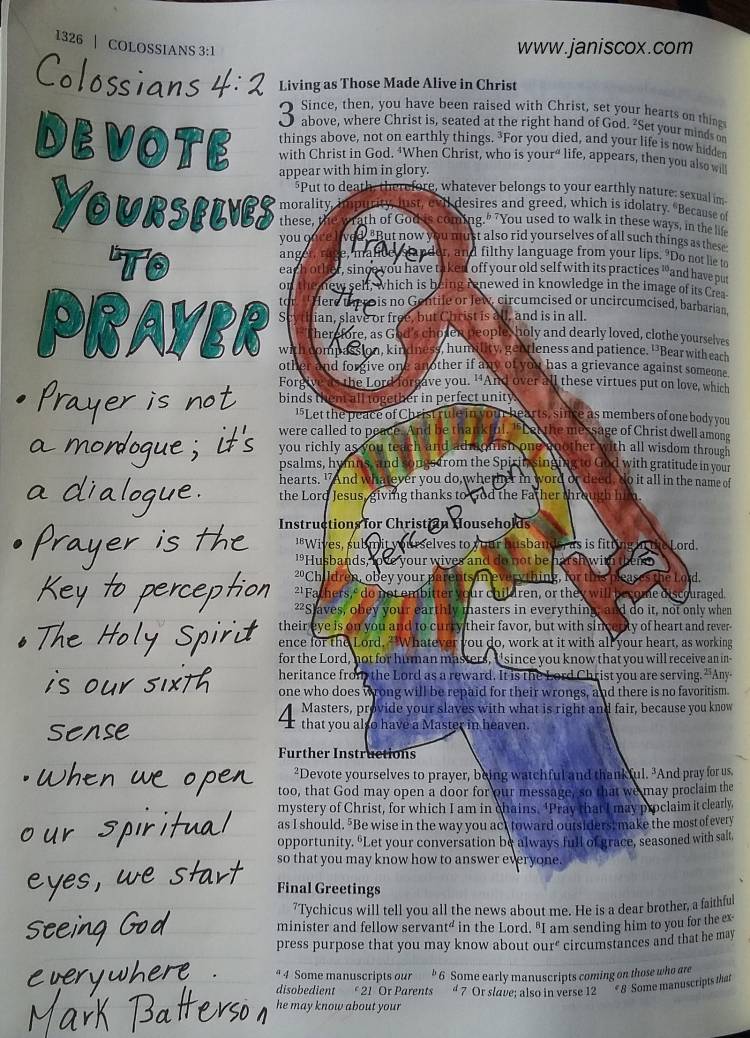 1326 | COLOSSIANS 3:1
www.janiscox.com
Colossians 4:2
DEVOTE
YOURSELVES
TO
PRAYER
• Prayer is not
a mordogue; it's
a dialogue.
• Prayer is the
Key to perception
• The Holy Spirit
is our sixth
sense
• When we open
our spiritual
eyes, we start
seeing God
everywhere.
Mark Batterson
Living as Those Made Alive in Christ
3 Since, then, you have been raised with Christ, set your hearts on things
above, where Christ is, seated at the right hand of God. ²Set your minds on
things above, not on earthly things. ³For you died, and your life is now hidden
with Christ in God. ⁴When Christ, who is yourᵃ life, appears, then you also will
appear with him in glory.
⁵Put to death, therefore, whatever belongs to your earthly nature: sexual im-
morality, impurity, lust, evil desires and greed, which is idolatry. ⁶Because of
these, the wrath of God is coming.ᵇ ⁷You used to walk in these ways, in the life
you once lived. ⁸But now you must also rid yourselves of all such things as these:
anger, rage, malice, slander, and filthy language from your lips. ⁹Do not lie to
each other, since you have taken off your old self with its practices ¹⁰and have put
on the new self, which is being renewed in knowledge in the image of its Crea-
tor. Here there is no Gentile or Jew, circumcised or uncircumcised, barbarian,
Scythian, slave or free, but Christ is all, and is in all.
¹²Therefore, as God's chosen people, holy and dearly loved, clothe yourselves
with compassion, kindness, humility, gentleness and patience. ¹³Bear with each
other and forgive one another if any of you has a grievance against someone.
Forgive as the Lord forgave you. ¹⁴And over all these virtues put on love, which
binds them all together in perfect unity.
¹⁵Let the peace of Christ rule in your hearts, since as members of one body you
were called to peace. And be thankful. ¹⁶Let the message of Christ dwell among
you richly as you teach and admonish one another with all wisdom through
psalms, hymns, and songs from the Spirit, singing to God with gratitude in your
hearts. ¹⁷And whatever you do, whether in word or deed, do it all in the name of
the Lord Jesus, giving thanks to God the Father through him.
Instructions for Christian Households
¹⁸Wives, submit yourselves to your husbands, as is fitting in the Lord.
¹⁹Husbands, love your wives and do not be harsh with them.
²⁰Children, obey your parents in everything, for this pleases the Lord.
²¹Fathers, do not embitter your children, or they will become discouraged.
²²Slaves, obey your earthly masters in everything; and do it, not only when
their eye is on you and to curry their favor, but with sincerity of heart and rever-
ence for the Lord. ²³Whatever you do, work at it with all your heart, as working
for the Lord, not for human masters, ²⁴since you know that you will receive an in-
heritance from the Lord as a reward. It is the Lord Christ you are serving. ²⁵Any-
one who does wrong will be repaid for their wrongs, and there is no favoritism.
4 Masters, provide your slaves with what is right and fair, because you know
that you also have a Master in heaven.
Further Instructions
²Devote yourselves to prayer, being watchful and thankful. ³And pray for us,
too, that God may open a door for our message, so that we may proclaim the
mystery of Christ, for which I am in chains. ⁴Pray that I may proclaim it clearly,
as I should. ⁵Be wise in the way you act toward outsiders; make the most of every
opportunity. ⁶Let your conversation be always full of grace, seasoned with salt,
so that you may know how to answer everyone.
Final Greetings
⁷Tychicus will tell you all the news about me. He is a dear brother, a faithful
minister and fellow servantᵈ in the Lord. ⁸I am sending him to you for the ex-
press purpose that you may know about ourᵉ circumstances and that he may
ᵃ 4 Some manuscripts our ᵇ 6 Some early manuscripts coming on those who are
disobedient ᶜ 21 Or Parents ᵈ 7 Or slave; also in verse 12 ᵉ 8 Some manuscripts that
he may know about your
Prayer
is
the
Key
Perception
to